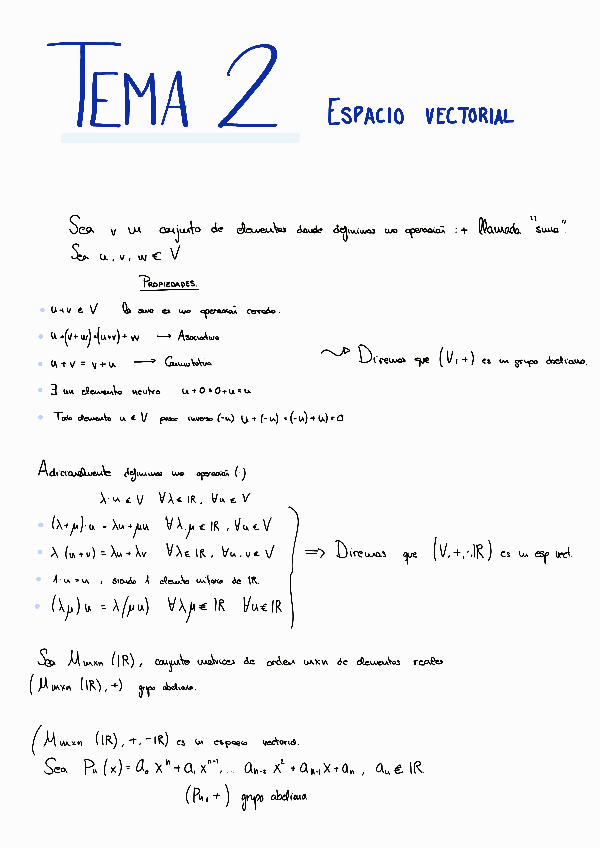 TEMA 2 ESPACIO VECTORIAL
Sea V un conjunto de elementos donde definimos una operación :+ llamada "suma".
Sea u, v, w ∈ V
PROPIEDADES.
• u+v ∈ V la suma es una operación cerrada.
• u+(v+w)=(u+v)+w → Asociativa
• u+v = v+u → Conmutativa
Diremos que (V,+) es un grupo abeliano.
• ∃ un elemento neutro u+0=0+u=u
• Todo elemento u ∈ V posee inverso (-u) u+(-u)=(-u)+u=0
Adicionalmente definimos una operación (·)
λ·u ∈ V ∀λ∈ℝ, ∀u∈V
• (λ+μ)·u = λu+μu ∀λ,μ∈ℝ, ∀u∈V
• λ(u+v) = λu+λv ∀λ∈ℝ, ∀u,v∈V
⇒ Diremos que (V,+,·ℝ) es un esp vect.
• 1·u=u, siendo 1 elemento unitario de ℝ
• (λμ)u = λ(μu) ∀λ,μ∈ℝ ∀u∈ℝ
Sea Mmxn (ℝ), conjunto matrices de orden mxn de elementos reales
(Mmxn (ℝ), +) grupo abeliano.
(Mmxn (ℝ), +, ·ℝ) es un espacio vectorial.
Sea Pn(x) = a₀xⁿ + a₁xⁿ⁻¹, ... aₙ₋₂x² + aₙ₋₁x + aₙ, aₙ∈ℝ
(Pn, +) grupo abeliano